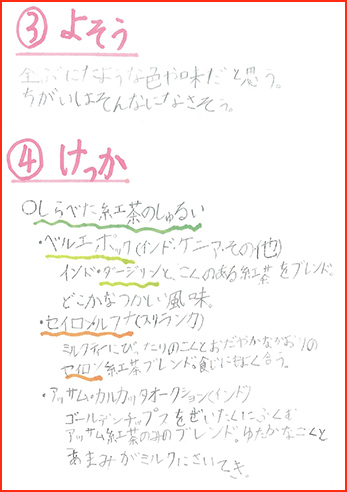 ③ よそう
全ぶにたような色や味だと思う。
ちがいはそんなになさそう。
④ けっか
○しらべた紅茶のしゅるい
・ベルエポック(インド・ケニア・その他)
インド・ダージリンと、こくのある紅茶をブレンド。
どこかなつかしい風味。
・セイロン・ルフナ(スリランカ)
ミルクティーにぴったりのこくとおだやかなかおりの
セイロン紅茶ブレンド。食じにもよく合う。
・アッサム・カルカッタオークション(インド)
ゴールデンチップスをぜいたくにふくむ
アッサム紅茶のみのブレンド。ゆたかなこくと
あまみがミルクにさいてき。